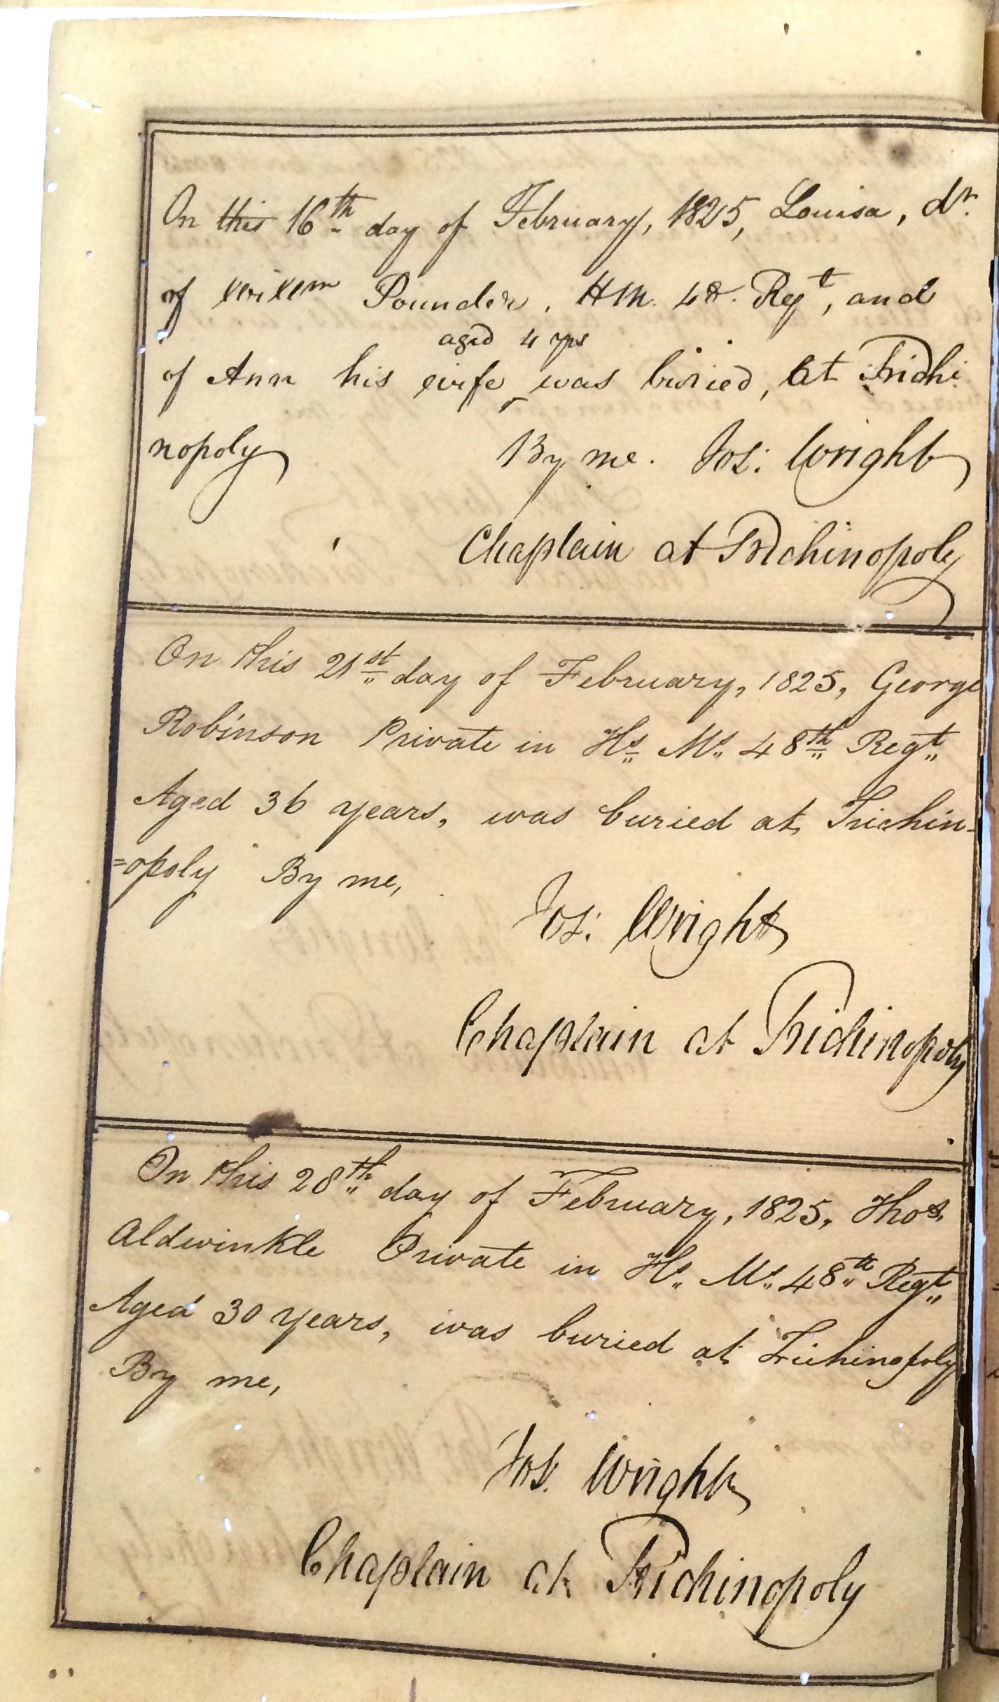 On this 16th day of February, 1825, Louisa, dr.
of Willm Pounder, H.M. 48. Regt, and
aged 4 yrs
of Ann his wife, was buried, at Trichi
nopoly By me. Jos: Wright
Chaplain at Trichinopoly
On this 21st day of February, 1825, George
Robinson Private in Hs. Ms. 48th Regt.
Aged 36 years, was buried at Trichin-
=opoly By me,
Jos: Wright
Chaplain at Trichinopoly
On this 28th day of February, 1825, Thos.
Aldwinkle Private in Hs. Ms. 48th Regt.
Aged 30 years, was buried at Trichinopoly
By me,
Jos. Wright
Chaplain at Trichinopoly